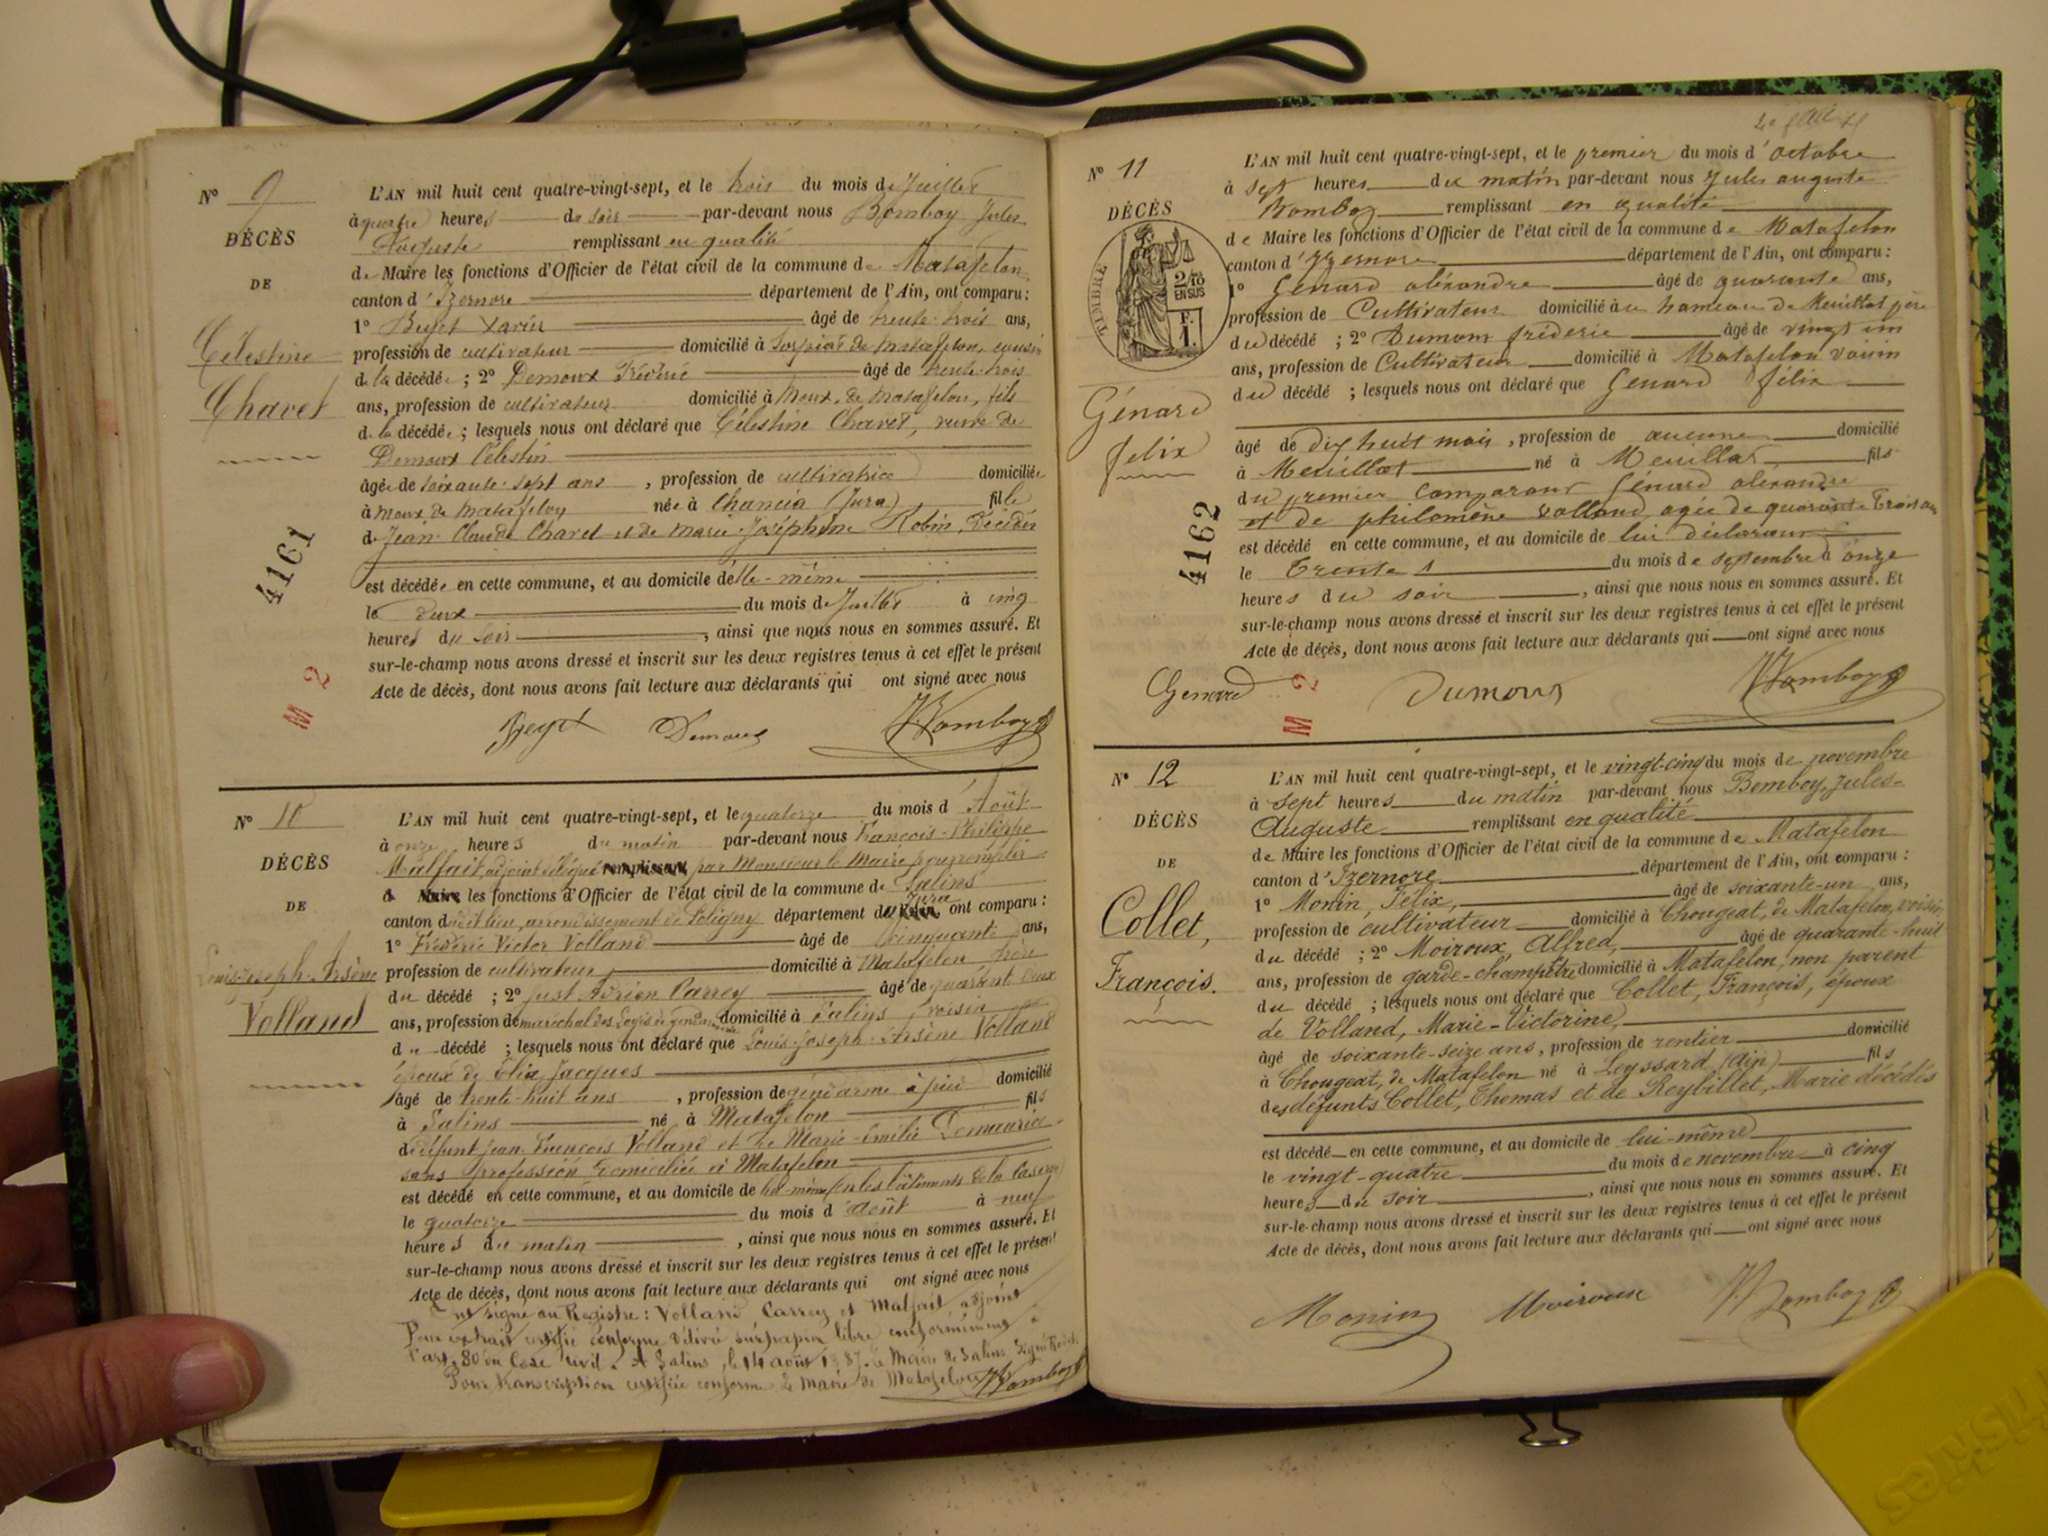 N° 9
DÉCÈS
DE
Célestine
Chavet
4161
M 2
L'AN mil huit cent quatre-vingt-sept, et le trois du mois de Juillet
à quatre heures du soir par-devant nous Bomboy Jules
Auguste remplissant en qualité
de Maire les fonctions d'Officier de l'état civil de la commune de Matafelon
canton d'Izernore département de l'Ain, ont comparu :
1° Beyet Xavier âgé de trente-trois ans,
profession de cultivateur domicilié à de Matafelon, cousin
de la décédée ; 2° Demoux Frédéric âgé de trente-trois
ans, profession de cultivateur domicilié à Meux, de Matafelon, fils
de la décédée ; lesquels nous ont déclaré que Célestine Chavet, veuve de
Demoux Célestin
âgée de soixante-sept ans , profession de cultivatrice domiciliée
à Meux de Matafelon née à Chancia (Jura) fille
de Jean-Claude Chavet et de Marie Joséphine Robin, décédés
est décédée en cette commune, et au domicile d'elle-même
le deux du mois de Juillet à cinq
heures du soir , ainsi que nous nous en sommes assuré. Et
sur-le-champ nous avons dressé et inscrit sur les deux registres tenus à cet effet le présent
Acte de décès, dont nous avons fait lecture aux déclarants qui ont signé avec nous
Beyet Demoux JBomboy
N° 10
DÉCÈS
DE
Louis-Joseph-Arsène
Volland
L'AN mil huit cent quatre-vingt-sept, et le quatorze du mois d'Août
à onze heures du matin par-devant nous François-Philippe
Malfait, adjoint délégué remplissant par Monsieur le Maire pour remplir
de Maire les fonctions d'Officier de l'état civil de la commune de Salins
canton dudit lieu, arrondissement de Poligny département du Jura ont comparu :
1° Frédéric Victor Volland âgé de cinquante ans,
profession de cultivateur domicilié à Matafelon frère
du décédé ; 2° Just Adrien Carrey âgé de quarante deux
ans, profession de maréchal des Logis de gendarmerie domicilié à Salins, voisin
du décédé ; lesquels nous ont déclaré que Louis-Joseph-Arsène Volland
époux de Jacques
âgé de trente-huit ans , profession de gendarme à pied domicilié
à Salins né à Matafelon fils
de défunt Jean-François Volland et de Marie-Emilie Demaurice
sans profession domiciliée à Matafelon
est décédé en cette commune, et au domicile de lui-même (en les bâtiments de la Caserne)
le quatorze du mois d'août à neuf
heures du matin , ainsi que nous nous en sommes assuré. Et
sur-le-champ nous avons dressé et inscrit sur les deux registres tenus à cet effet le présent
Acte de décès, dont nous avons fait lecture aux déclarants qui ont signé avec nous
Ont signé au Registre : Volland Carrey et Malfait, adjoint
Pour extrait certifié conforme délivré sur papier libre conformément à
l'art. 80 du Code civil. A Salins, le 14 août 1887. Le Maire de Salins, Signé
Pour transcription certifiée conforme Le Maire de Matafelon JBomboy
N° 11
DÉCÈS
TIMBRE
2/10
EN SUS
F.
1.
Génard
felix
4162
M 2
L'AN mil huit cent quatre-vingt-sept, et le premier du mois d'octobre
à sept heures du matin par-devant nous Jules auguste
Bomboy remplissant en qualité
de Maire les fonctions d'Officier de l'état civil de la commune de Matafelon
canton d'Izernore département de l'Ain, ont comparu :
1° Génard aléxandre âgé de quarante ans,
profession de Cultivateur domicilié au hameau de Meuillat père
du décédé ; 2° Dumour fréderic âgé de vingt un
ans, profession de Cultivateur domicilié à Matafelon voisin
du décédé ; lesquels nous ont déclaré que Génard félix
âgé de dix huit mois , profession de aucune domicilié
à Meuillat né à Meuillat fils
du premier comparant Génard aléxandre
et de philomène volland agée de quarante Trois ans
est décédé en cette commune, et au domicile de lui déclarant
le trente du mois de septembre à onze
heures du soir , ainsi que nous nous en sommes assuré. Et
sur-le-champ nous avons dressé et inscrit sur les deux registres tenus à cet effet le présent
Acte de décès, dont nous avons fait lecture aux déclarants qui ont signé avec nous
Genard Dumour JBomboy
N° 12
DÉCÈS
DE
Collet,
François.
L'AN mil huit cent quatre-vingt-sept, et le vingt-cinq du mois de novembre
à sept heures du matin par-devant nous Bomboy, Jules-
Auguste remplissant en qualité
de Maire les fonctions d'Officier de l'état civil de la commune de Matafelon
canton d'Izernore département de l'Ain, ont comparu :
1° Monin, Félix, âgé de soixante-un ans,
profession de cultivateur domicilié à Chougeat, de Matafelon, voisin
du décédé ; 2° Moiroux, Alfred, âgé de quarante-huit
ans, profession de garde-champêtre domicilié à Matafelon, non parent
du décédé ; lesquels nous ont déclaré que Collet, François, époux
de Volland, Marie-Victorine,
âgé de soixante-seize ans, profession de rentier domicilié
à Chougeat, de Matafelon né à Leyssard (Ain) fils
des défunts Collet, Thomas et de Reybillet, Marie décédés
est décédé en cette commune, et au domicile de lui-même
le vingt-quatre du mois de novembre à cinq
heures du soir , ainsi que nous nous en sommes assuré. Et
sur-le-champ nous avons dressé et inscrit sur les deux registres tenus à cet effet le présent
Acte de décès, dont nous avons fait lecture aux déclarants qui ont signé avec nous
Monin Moiroux JBomboy